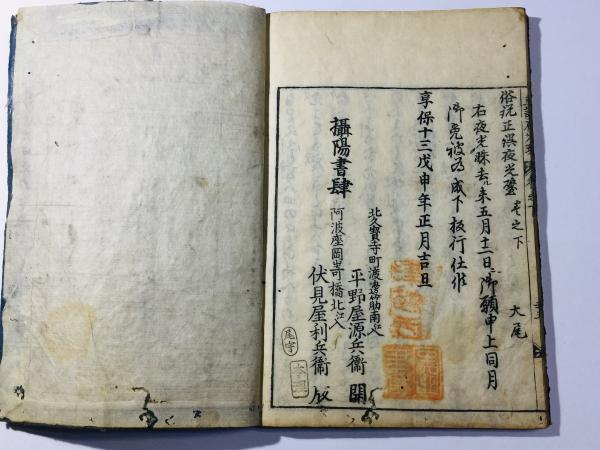 俗説正誤夜光璧 巻之下 大尾
右夜光珠去未五月十二日御願申上同月
御免被為成下板行仕候
享保十三戊申年正月吉旦
攝陽書肆
北久寳寺町渡邊筋南入
平野屋源兵衞
阿波座岡嵜橋北入
伏見屋利兵衞
開
版